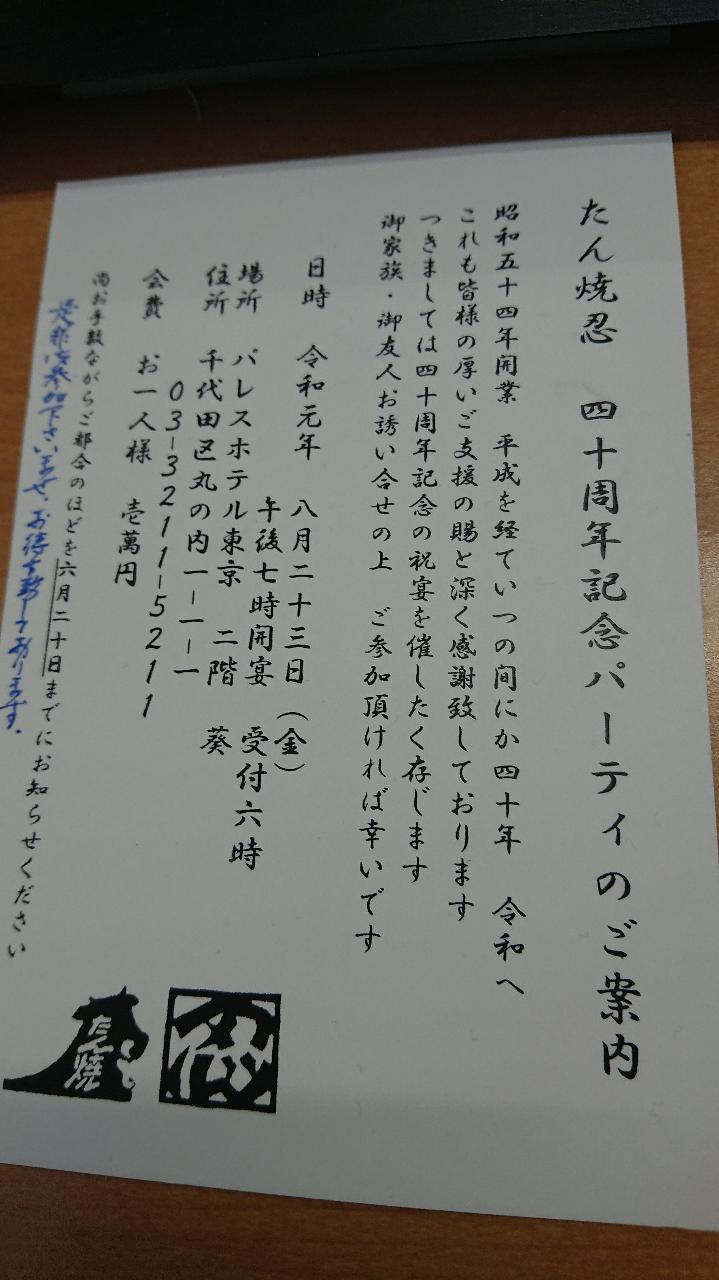 たん焼忍 四十周年記念パーティのご案内
昭和五十四年開業 平成を経ていつの間にか四十年 令和へ
これも皆様の厚いご支援の賜と深く感謝致しております
つきましては四十周年記念の祝宴を催したく存じます
御家族・御友人お誘い合せの上 ご参加頂ければ幸いです
日時 令和元年 八月二十三日(金)
午後七時開宴 受付六時
場所 パレスホテル東京 二階 葵
住所 千代田区丸の内一-一-一
03-3211-5211
会費 お一人様 壱萬円
尚お手数ながらご都合のほどを六月二十日までにお知らせください
是非御参加下さいませ、お待ち致しております。
たん焼
忍